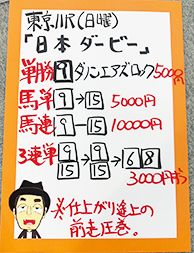 東京11R(日曜)
「日本ダービー」
単勝 9 ダノンエアズロック5000円
馬単 9→15 5000円
馬連 9-15 10000円
3連単 9 15→9 15→6 8
3000円ずつ
※仕上がり途上の
前走圧巻。